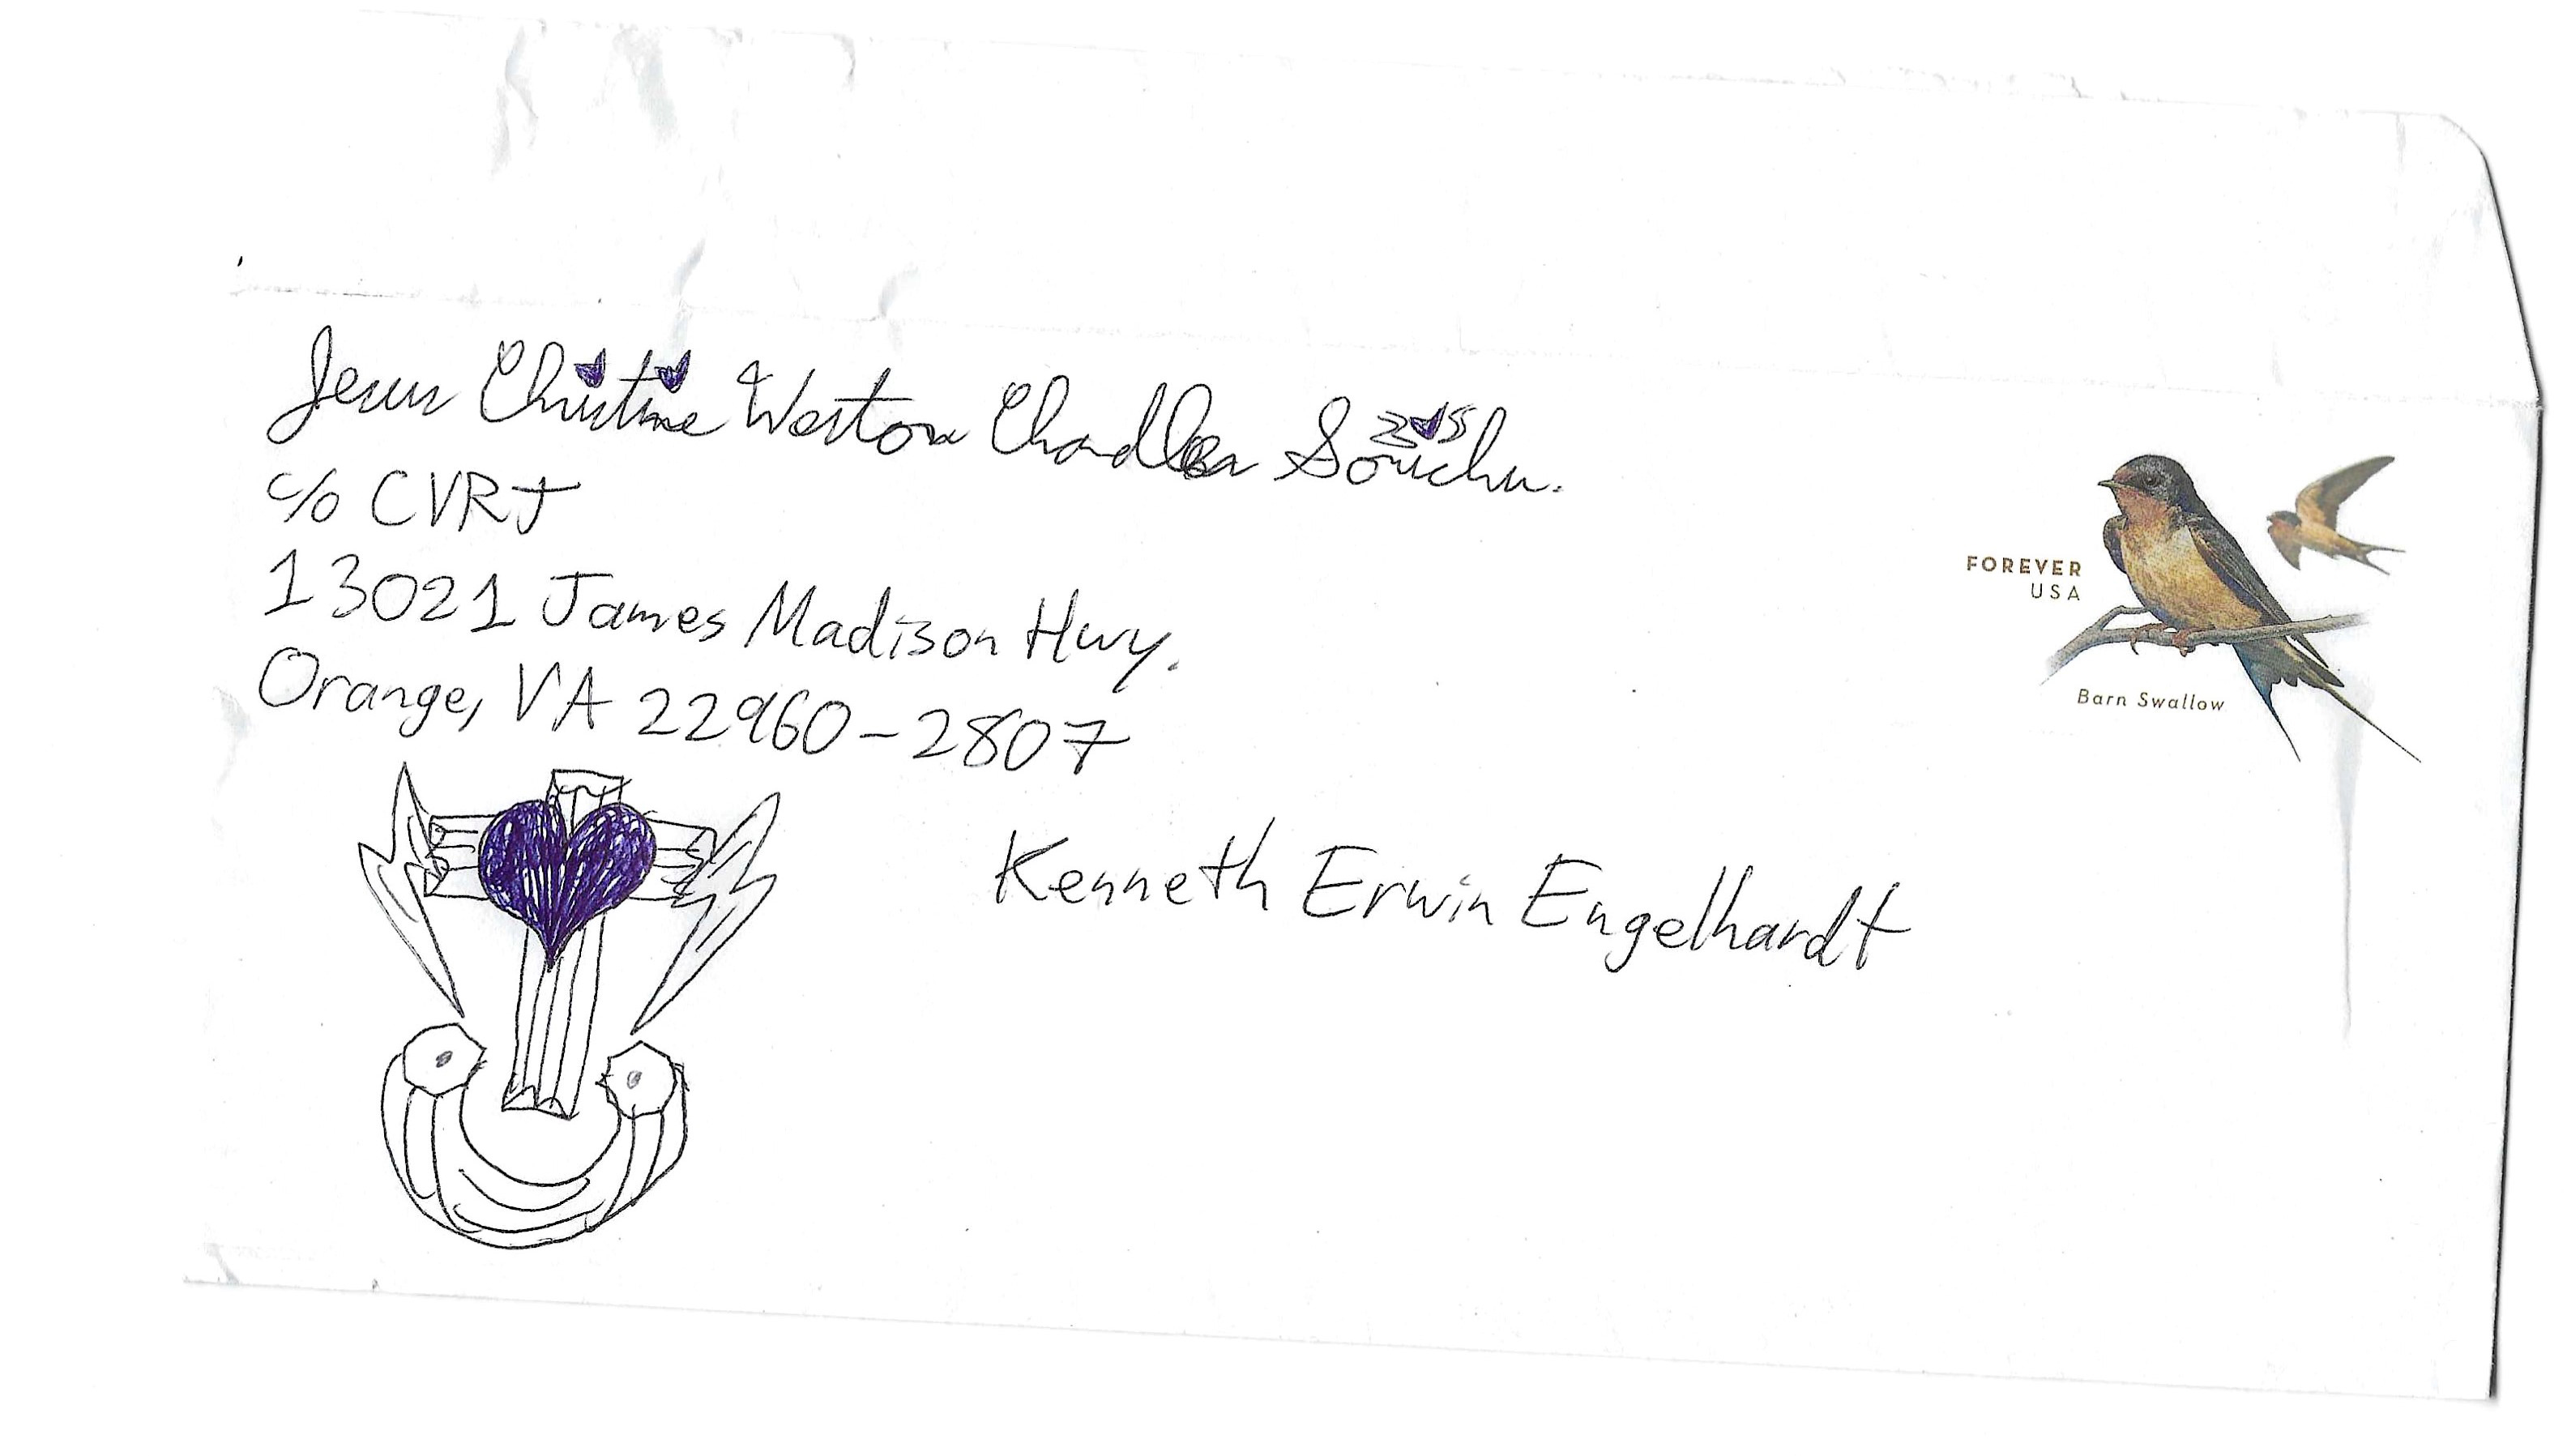 Jesus Christine Weston Chandler Sonichu.
c/o CVRJ
13021 James Madison Hwy.
Orange, VA 22960-2807
FOREVER
USA
Barn Swallow
Kenneth Erwin Engelhardt